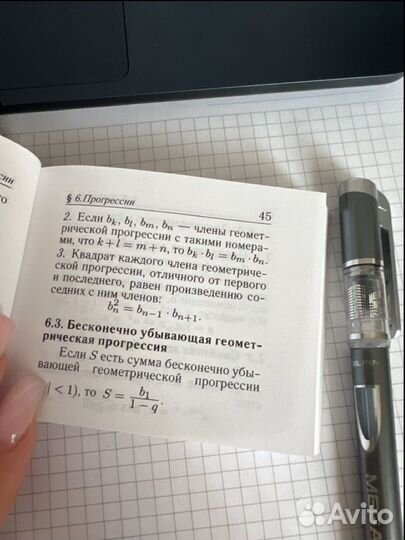 § 6.Прогрессии 45
2. Если b_k, b_l, b_m, b_n — члены геомет-
рической прогрессии с такими номера-
ми, что k + l = m + n, то b_k · b_l = b_m · b_n.
3. Квадрат каждого члена геометриче-
ской прогрессии, отличного от первого
и последнего, равен произведению со-
седних с ним членов:
b_n^2 = b_{n−1} · b_{n+1}.
6.3. Бесконечно убывающая геомет-
рическая прогрессия
Если S есть сумма бесконечно убы-
вающей геометрической прогрессии
| < 1), то S = b_1 / (1 − q).
Avito